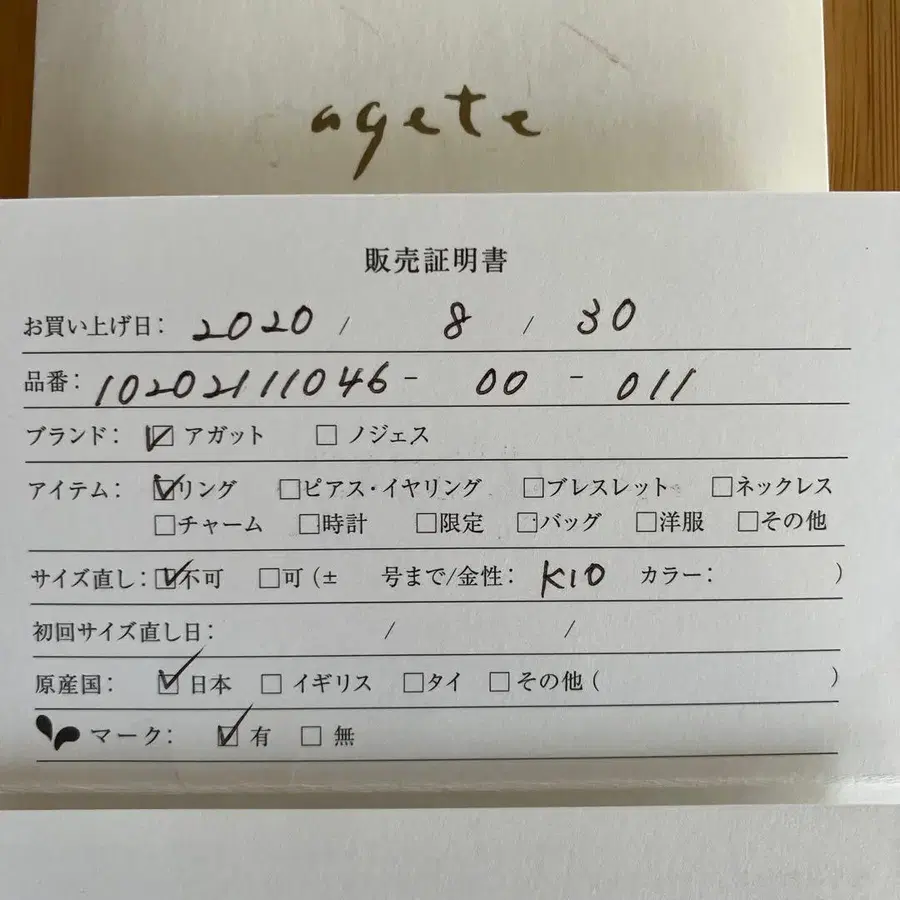 agete
販売証明書
お買い上げ日: 2020 / 8 / 30
品番: 10202111046 - 00 - 011
ブランド: ☑ アガット □ ノジェス
アイテム: ☑リング □ピアス・イヤリング □ブレスレット □ネックレス
□チャーム □時計 □限定 □バッグ □洋服 □その他
サイズ直し: ☑不可 □可 (± 号まで/金性: K10 カラー: )
初回サイズ直し日: / /
原産国: ☑日本 □ イギリス □タイ □その他 ( )
マーク: ☑ 有 □ 無